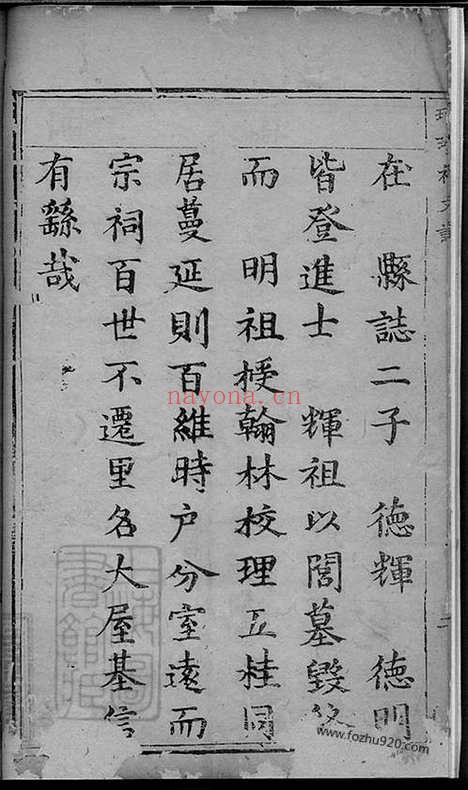 在 縣誌二子 德輝 德明
皆登進士 輝祖以閣墓毀
而 明祖授翰林校理五桂同
居蔓延則百維時户分室遠而
宗祠百世不遷里名大屋基信
有繇哉
nayona.cn
www.fozhu920.com